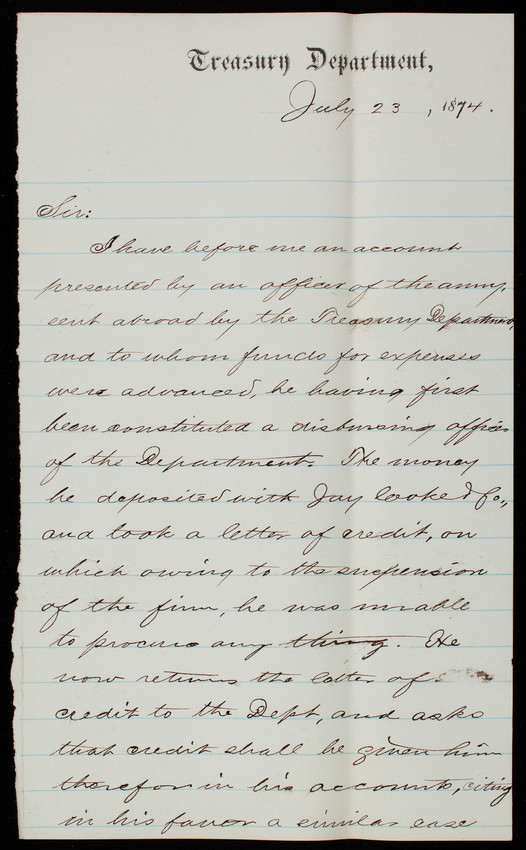 Treasury Department,
July 23, 1874.
Sir:
I have before me an account
presented by an officer of the army,
sent abroad by the Treasury Department,
and to whom funds for expenses
were advanced, he having first
been constituted a disbursing officer
of the Department. The money
he deposited with Jay Cooke & Co.,
and took a letter of credit, on
which owing to the suspension
of the firm, he was unable
to procure any thing. He
now returns the letter of
credit to the Dept, and asks
that credit shall be given him
therefor in his accounts, citing
in his favor a similar case